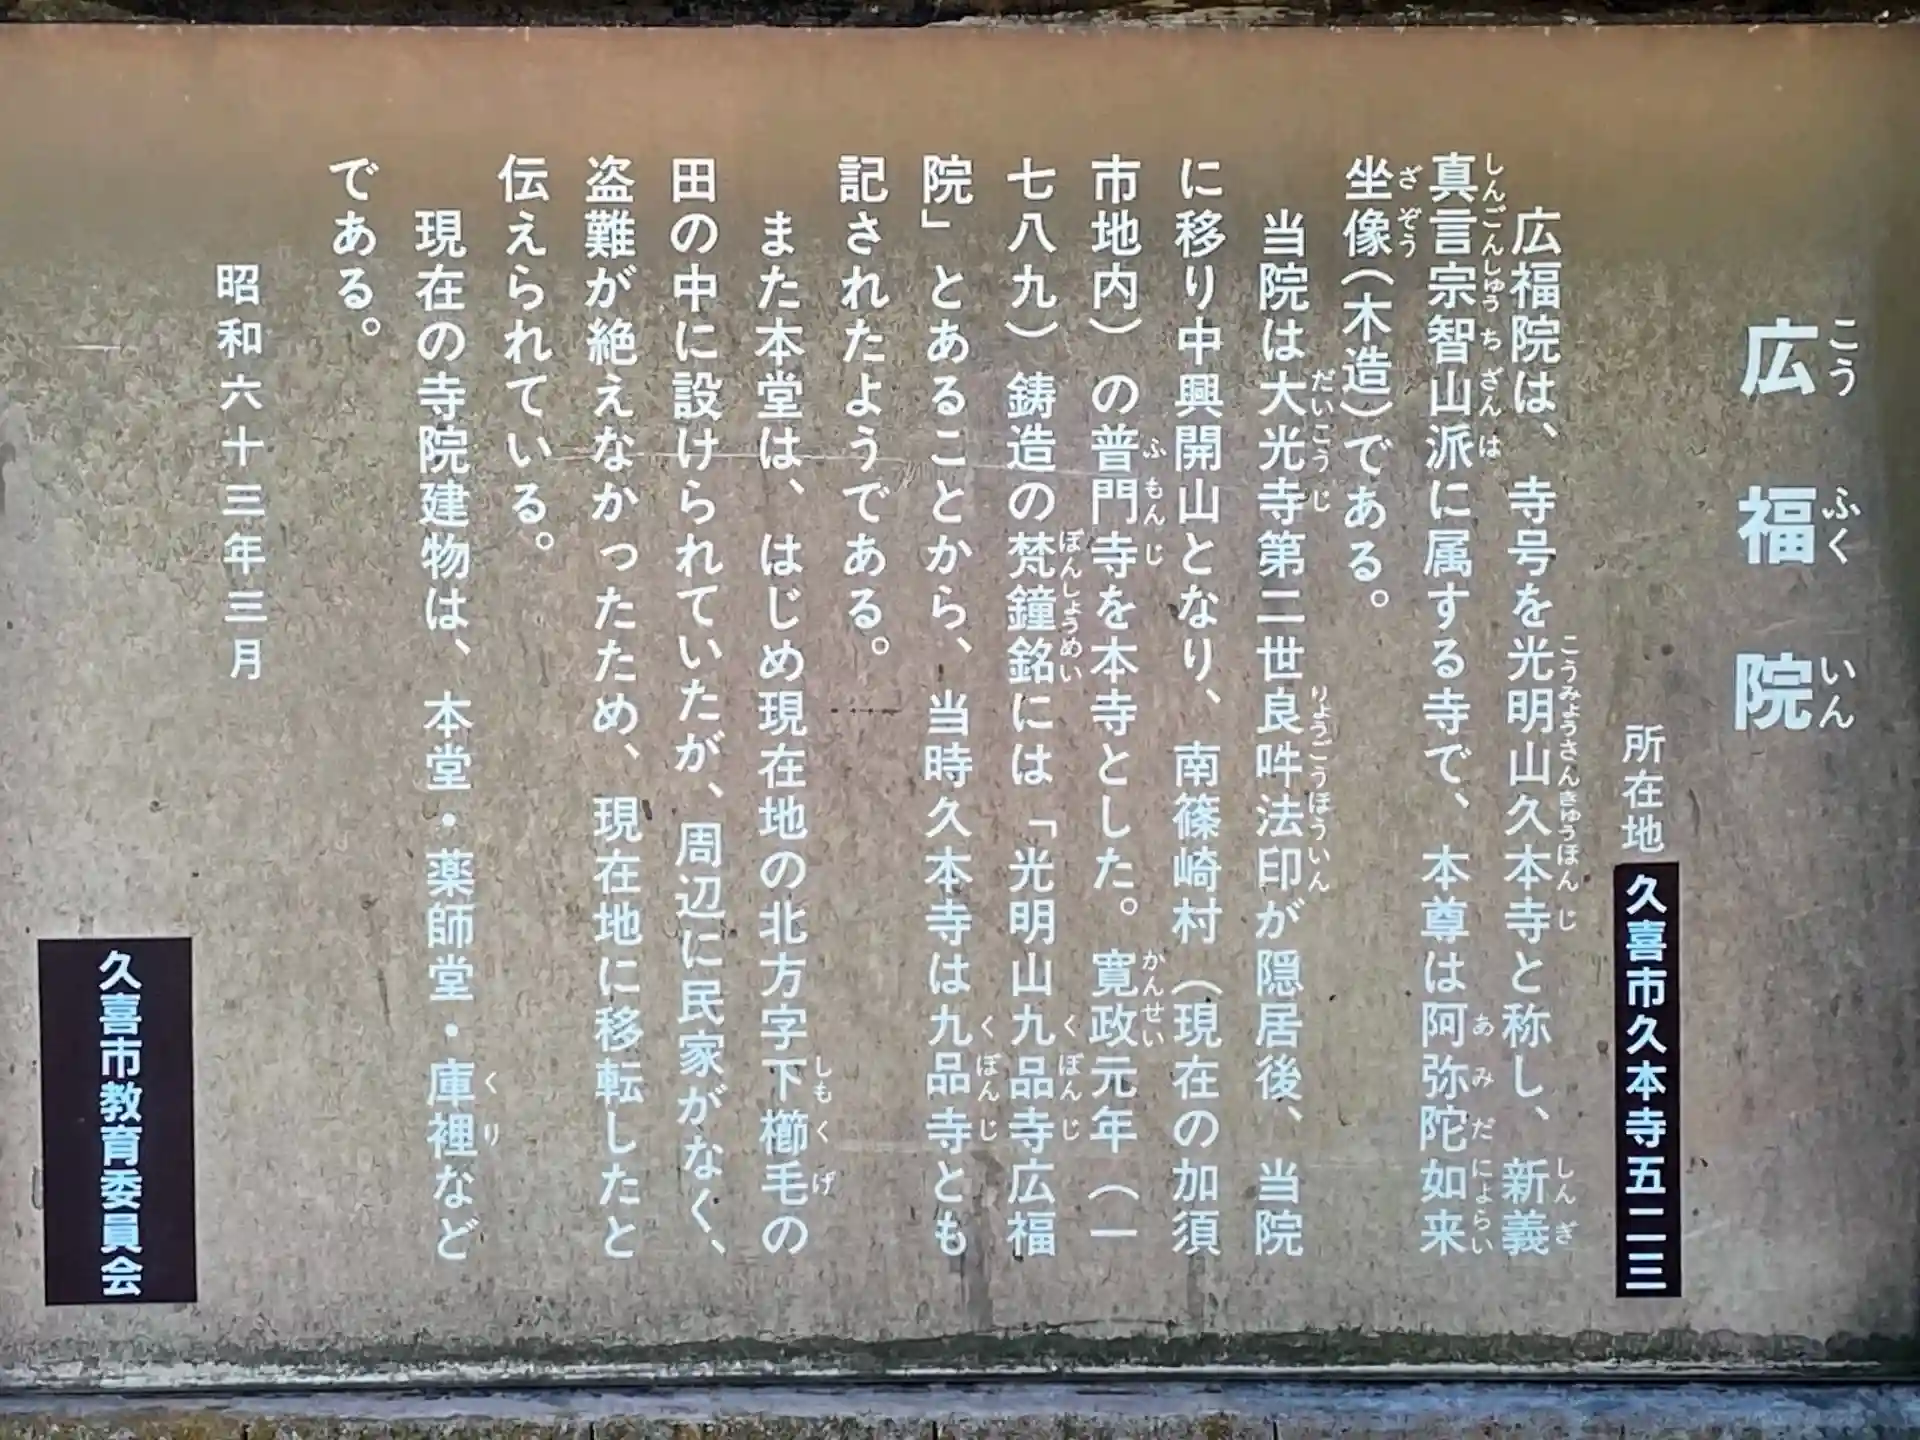 広福院
所在地 久喜市久本寺五二三
広福院は、寺号を光明山久本寺と称し、新義
真言宗智山派に属する寺で、本尊は阿弥陀如来
坐像(木造)である。
当院は大光寺第二世良吽法印が隠居後、当院
に移り中興開山となり、南篠崎村(現在の加須
市地内)の普門寺を本寺とした。寛政元年(一
七八九)鋳造の梵鐘銘には「光明山九品寺広福
院」とあることから、当時久本寺は九品寺とも
記されたようである。
また本堂は、はじめ現在地の北方字下櫛毛の
田の中に設けられていたが、周辺に民家がなく、
盗難が絶えなかったため、現在地に移転したと
伝えられている。
現在の寺院建物は、本堂・薬師堂・庫裡など
である。
昭和六十三年三月
久喜市教育委員会